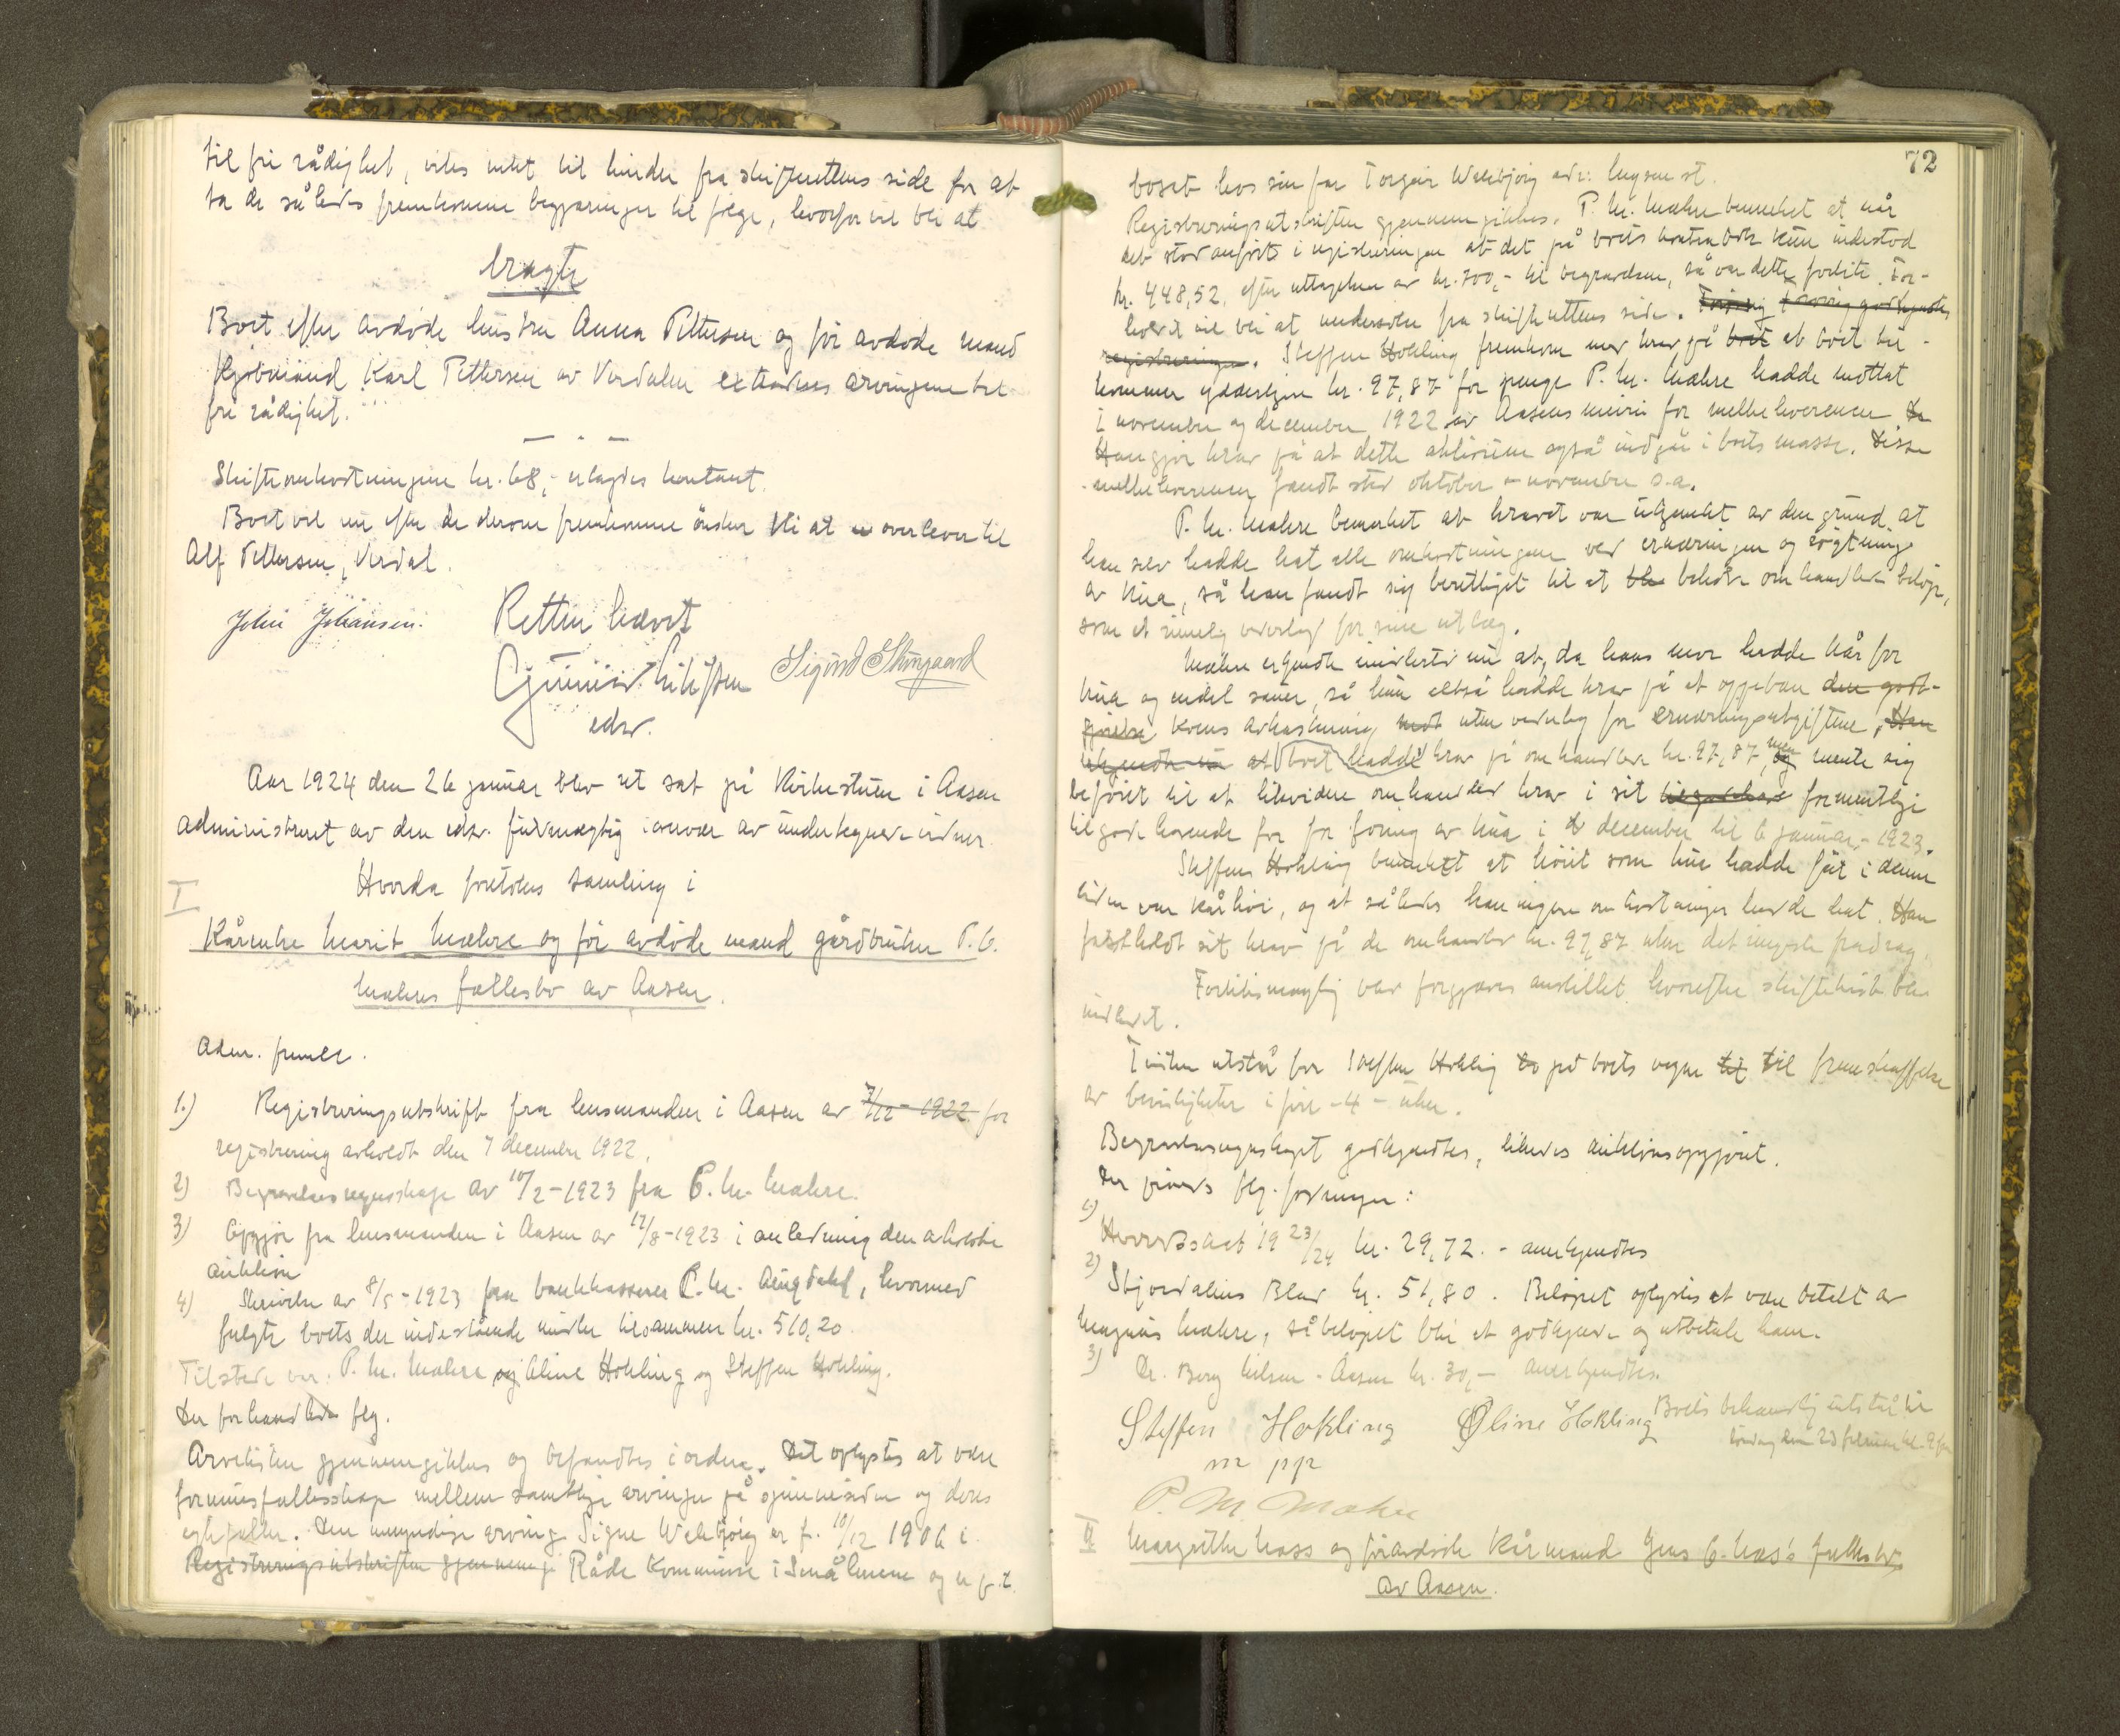 til fri rådighet, vites intet til hinder fra skifterettens side for at
ta de således fremkomne begjæringer til følge, hvorfor vil bli at
eragte
Boet efter avdøde hustru Anna Pettersen og før avdøde mand
Kjøbmand Karl Pettersen av Verdalen extraderes arvingene til
fri rådighet.
Skifteomkostningene kr. 68,- erlagdes kontant.
Boet vil nu efter de derom fremkomne ønsker bli at overlevere til
Alf Pettersen, Verdal.
John Johansen.
Retten hævet
Sigurd
edsv.
Aar 1924 den 26 januar blev ret sat på Kirkestuen i Aasen
administreret av den edsv. fuldmægtig i nærvær av undertegnede vidner.
Hvorda foretokes samling i
I
Kårenke Marit Mæhre og før avdøde mand gårdbruker P. O.
Mæhres fællesbo av Aasen.
Adm. fremla.
1.) Registreringsutskrift fra lensmanden i Aasen av 7/12-1922 for
registrering avholdt den 7 december 1922.
2) Begravelsesregnskap av 10/2-1923 fra P. M. Mæhre.
3) Opgjør fra lensmanden i Aasen av 17/8-1923 i anledning den avholdte
auktion
4) Skrivelse av 8/5-1923 fra bankkasserer P. M. , hvormed
fulgte boets der indestående midler tilsammen kr. 510,20.
Tilstede var: P. M. Mæhre og Oline Hokling og Steffen Hokling.
Der forhandledes flg.
Arvelisten gjennemgikkes og befandtes i orden. Det oplystes at være
formuesfællesskap mellem samtlige arvinger på spinnesiden og deres
egtefæller. Den umyndige arving Signe Wekbjørg er f. 10/12 1906 i
Registreringsutskriften gjennemgi Råde kommune i Smålenene og er f. t.
72
bosat hos sin far Torgeir Wekbjørg adr: Mysen st.
Registreringsutskriften gjennemgikkes. P. M. Mæhre bemerket at når
det stod anført i registreringen at det på boets kontrabok kun indestod
kr. 448,52, efter uttagelsen av kr. 700,- til begravelsen, så var dette feil. For-
holdet vil bli at undersøke fra skifterettens side. Forøvrig godkjendtes
registreringen. Steffen Hokling fremkom med krav på boet at boet til-
kommer ydderligere kr. 97,87 for penge P. M. Mæhre hadde mottat
i november og december 1922 av Aasens meieri for melkeleverencer De
Han gjør krav på at dette aktivum også indgår i boets masse. Disse
melkeleverencer fandt sted oktober - november s.a.
P. M. Mæhre bemerket at kravet var ukjendt av den grund at
han selv hadde hat alle omkostningene ved ernæringen og røgtning
av kua, så han fandt sig berettiget til at beholde omhandlede beløp,
som et rimelig vederlag for sine utlæg.
Mæhre erkjendte imidlertid nu at, da hans mor hadde kår for
kua og endel sauer, så hun altså hadde krav på at oppebære den godt-
gjørelse kuens avkastning uten vederlag for ernæringsutgiftene, Han
erkjendte nu at boet hadde krav på omhandlede kr. 97,87, men mente sig
beføiet til at likvidere omhandlede krav i sit tilgodehav formentlige
tilgodehavende for foring av kua i december til 6 januar - 1923.
Steffen Hokling bemerket at høiet som kua hadde fåt i denne
tiden var kårhøi, og at således han ingen omkostninger hadde hat. Han
fastholdt sit krav på de omhandlede kr. 97,87 uten det ringeste fradrag.
Forliksmægling var forgjæves anstillet hvorefter skiftetvist blev
indledet.
Tvisten utstår for Steffen Hokling på boets vegne til fremskaffelse
av bevisligheter i fire -4- uker.
Begravelsesregnskapet godkjendtes, likeledes auktionsopgjøret.
Der forelå flg. fordringer:
1) Herredskat 1923/24 kr. 29,72. - anerkjendtes
2) Stjørdalens Blad kr. 51,80. Beløpet oplystes at være betalt av
Magnus Mæhre, så beløpet blir at godkjende og utbetale ham.
3) Dr. Berg Nilsen - Aasen kr. 30,- anerkjendtes.
Steffen Hokling Oline Hokling
Boets behandling utstår til
lørdag den 23 februar kl. 9 fm
m p p
P. M. Mæhre
II
Margrethe Hass og før avdøde kårmand Jens O. Hass's fællesbo
av Aasen.